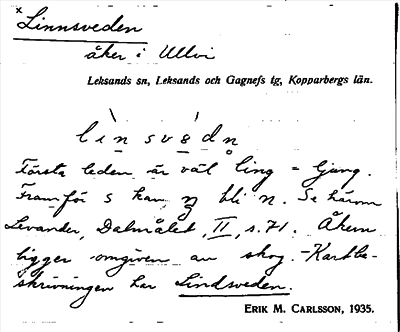 x Linnsveden
åker i Ullvi
Leksands sn, Leksands och Gagnefs tg, Kopparbergs län.
linsvedn
Första leden är väl ling = ljung.
Framför s kan ŋ bli n. Se härom
Levander, Dalmålet, II, s. 71. Åkern
ligger omgiven av skog. - Kartbe-
skrivningen har Lindsveden.
ERIK M. CARLSSON, 1935.